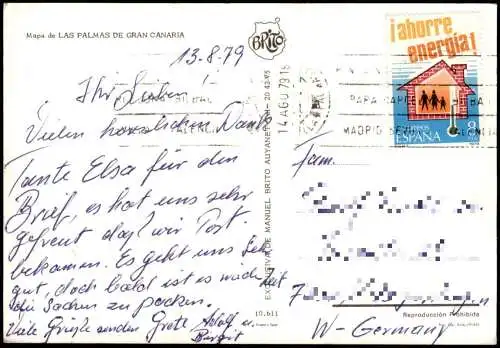 Mapa de LAS PALMAS DE GRAN CANARIA
BRITO
¡ahorre
energía!
CORREOS
ESPAÑA
8
14 AGO 79
MADRID
13.8.79
Ihr Lieben!
Vielen herzlichen Dank
Tante Elsa für den
Brief, es hat uns sehr
gefreut daß wir Post
bekamen. Es geht uns sehr
gut, doch bald ist es wieder Zeit
die Sachen zu packen.
Viele Grüße senden Grete Adolf u.
Birgit
EXCLUSIVA DE MANUEL BRITO AUYANET
10.611
Fam.
7
Reproducción Prohibida
W-Germany